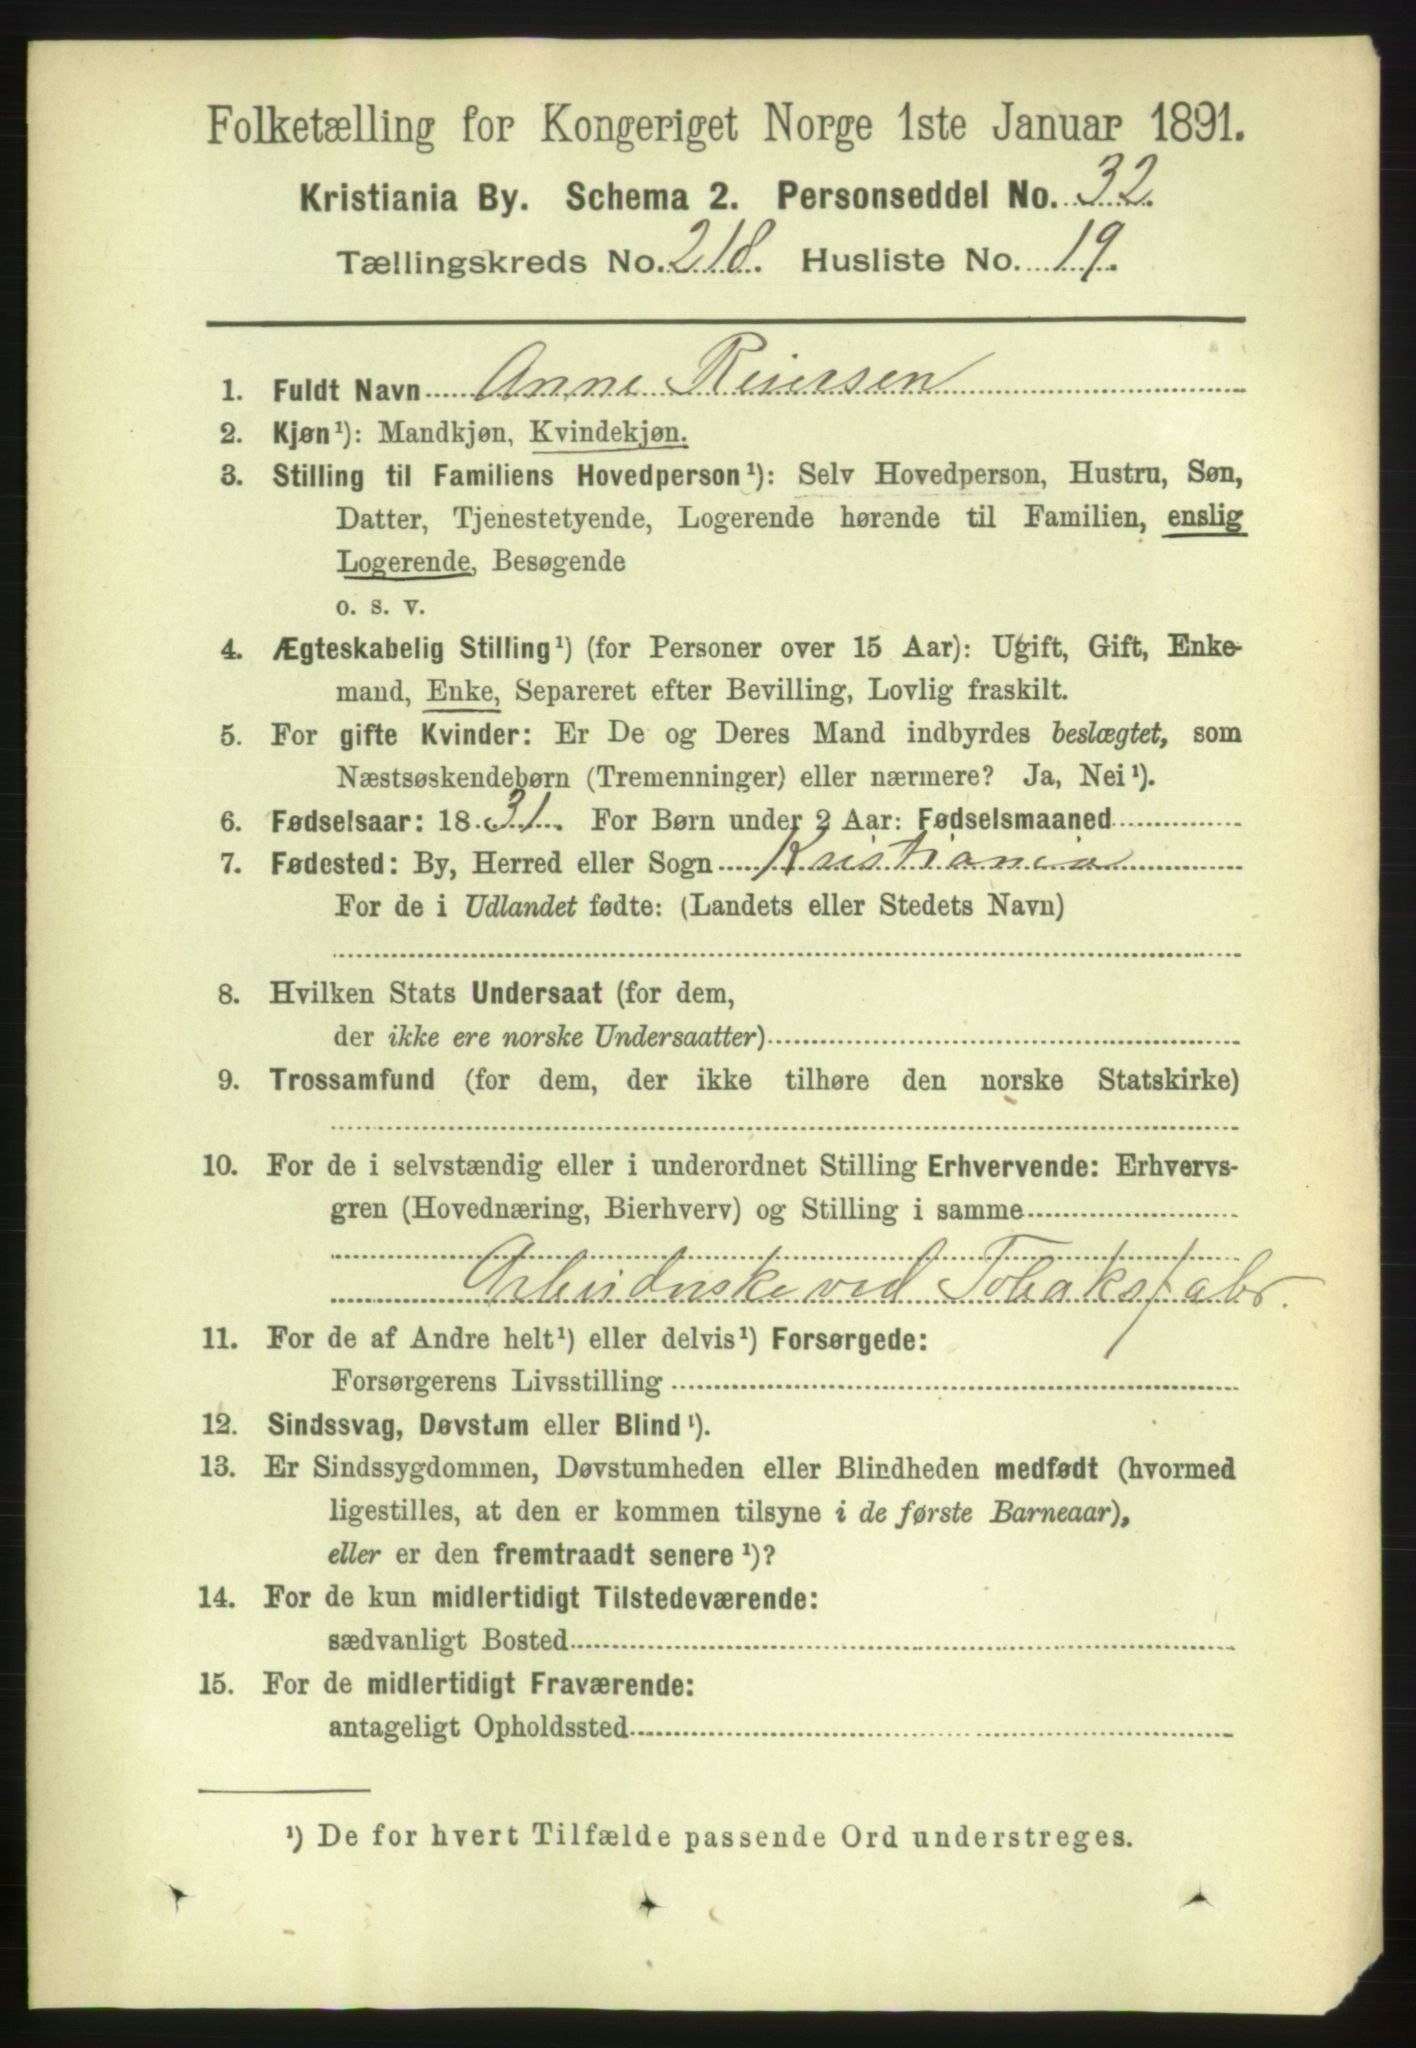 Folketælling for Kongeriget Norge 1ste Januar 1891.
Kristiania By. Schema 2. Personseddel No. 32.
Tællingskreds No. 218. Husliste No. 19.
1. Fuldt Navn Anne Reiersen
2. Kjøn¹): Mandkjøn, Kvindekjøn.
3. Stilling til Familiens Hovedperson¹): Selv Hovedperson, Hustru, Søn,
Datter, Tjenestetyende, Logerende hørende til Familien, enslig
Logerende, Besøgende
o. s. v.
4. Ægteskabelig Stilling¹) (for Personer over 15 Aar): Ugift, Gift, Enke-
mand, Enke, Separeret efter Bevilling, Lovlig fraskilt.
5. For gifte Kvinder: Er De og Deres Mand indbyrdes beslægtet, som
Næstsøskendebørn (Tremenninger) eller nærmere? Ja, Nei¹).
6. Fødselsaar: 1831. For Børn under 2 Aar: Fødselsmaaned
7. Fødested: By, Herred eller Sogn Kristiania
For de i Udlandet fødte: (Landets eller Stedets Navn)
8. Hvilken Stats Undersaat (for dem,
der ikke ere norske Undersaatter)
9. Trossamfund (for dem, der ikke tilhøre den norske Statskirke)
10. For de i selvstændig eller i underordnet Stilling Erhvervende: Erhvervs-
gren (Hovednæring, Bierhverv) og Stilling i samme
Arbeiderske ved Tobaksfabr.
11. For de af Andre helt¹) eller delvis¹) Forsørgede:
Forsørgerens Livsstilling
12. Sindssvag, Døvstum eller Blind¹).
13. Er Sindssygdommen, Døvstumheden eller Blindheden medfødt (hvormed
ligestilles, at den er kommen tilsyne i de første Barneaar),
eller er den fremtraadt senere¹)?
14. For de kun midlertidigt Tilstedeværende:
sædvanligt Bosted
15. For de midlertidigt Fraværende:
antageligt Opholdssted
¹) De for hvert Tilfælde passende Ord understreges.